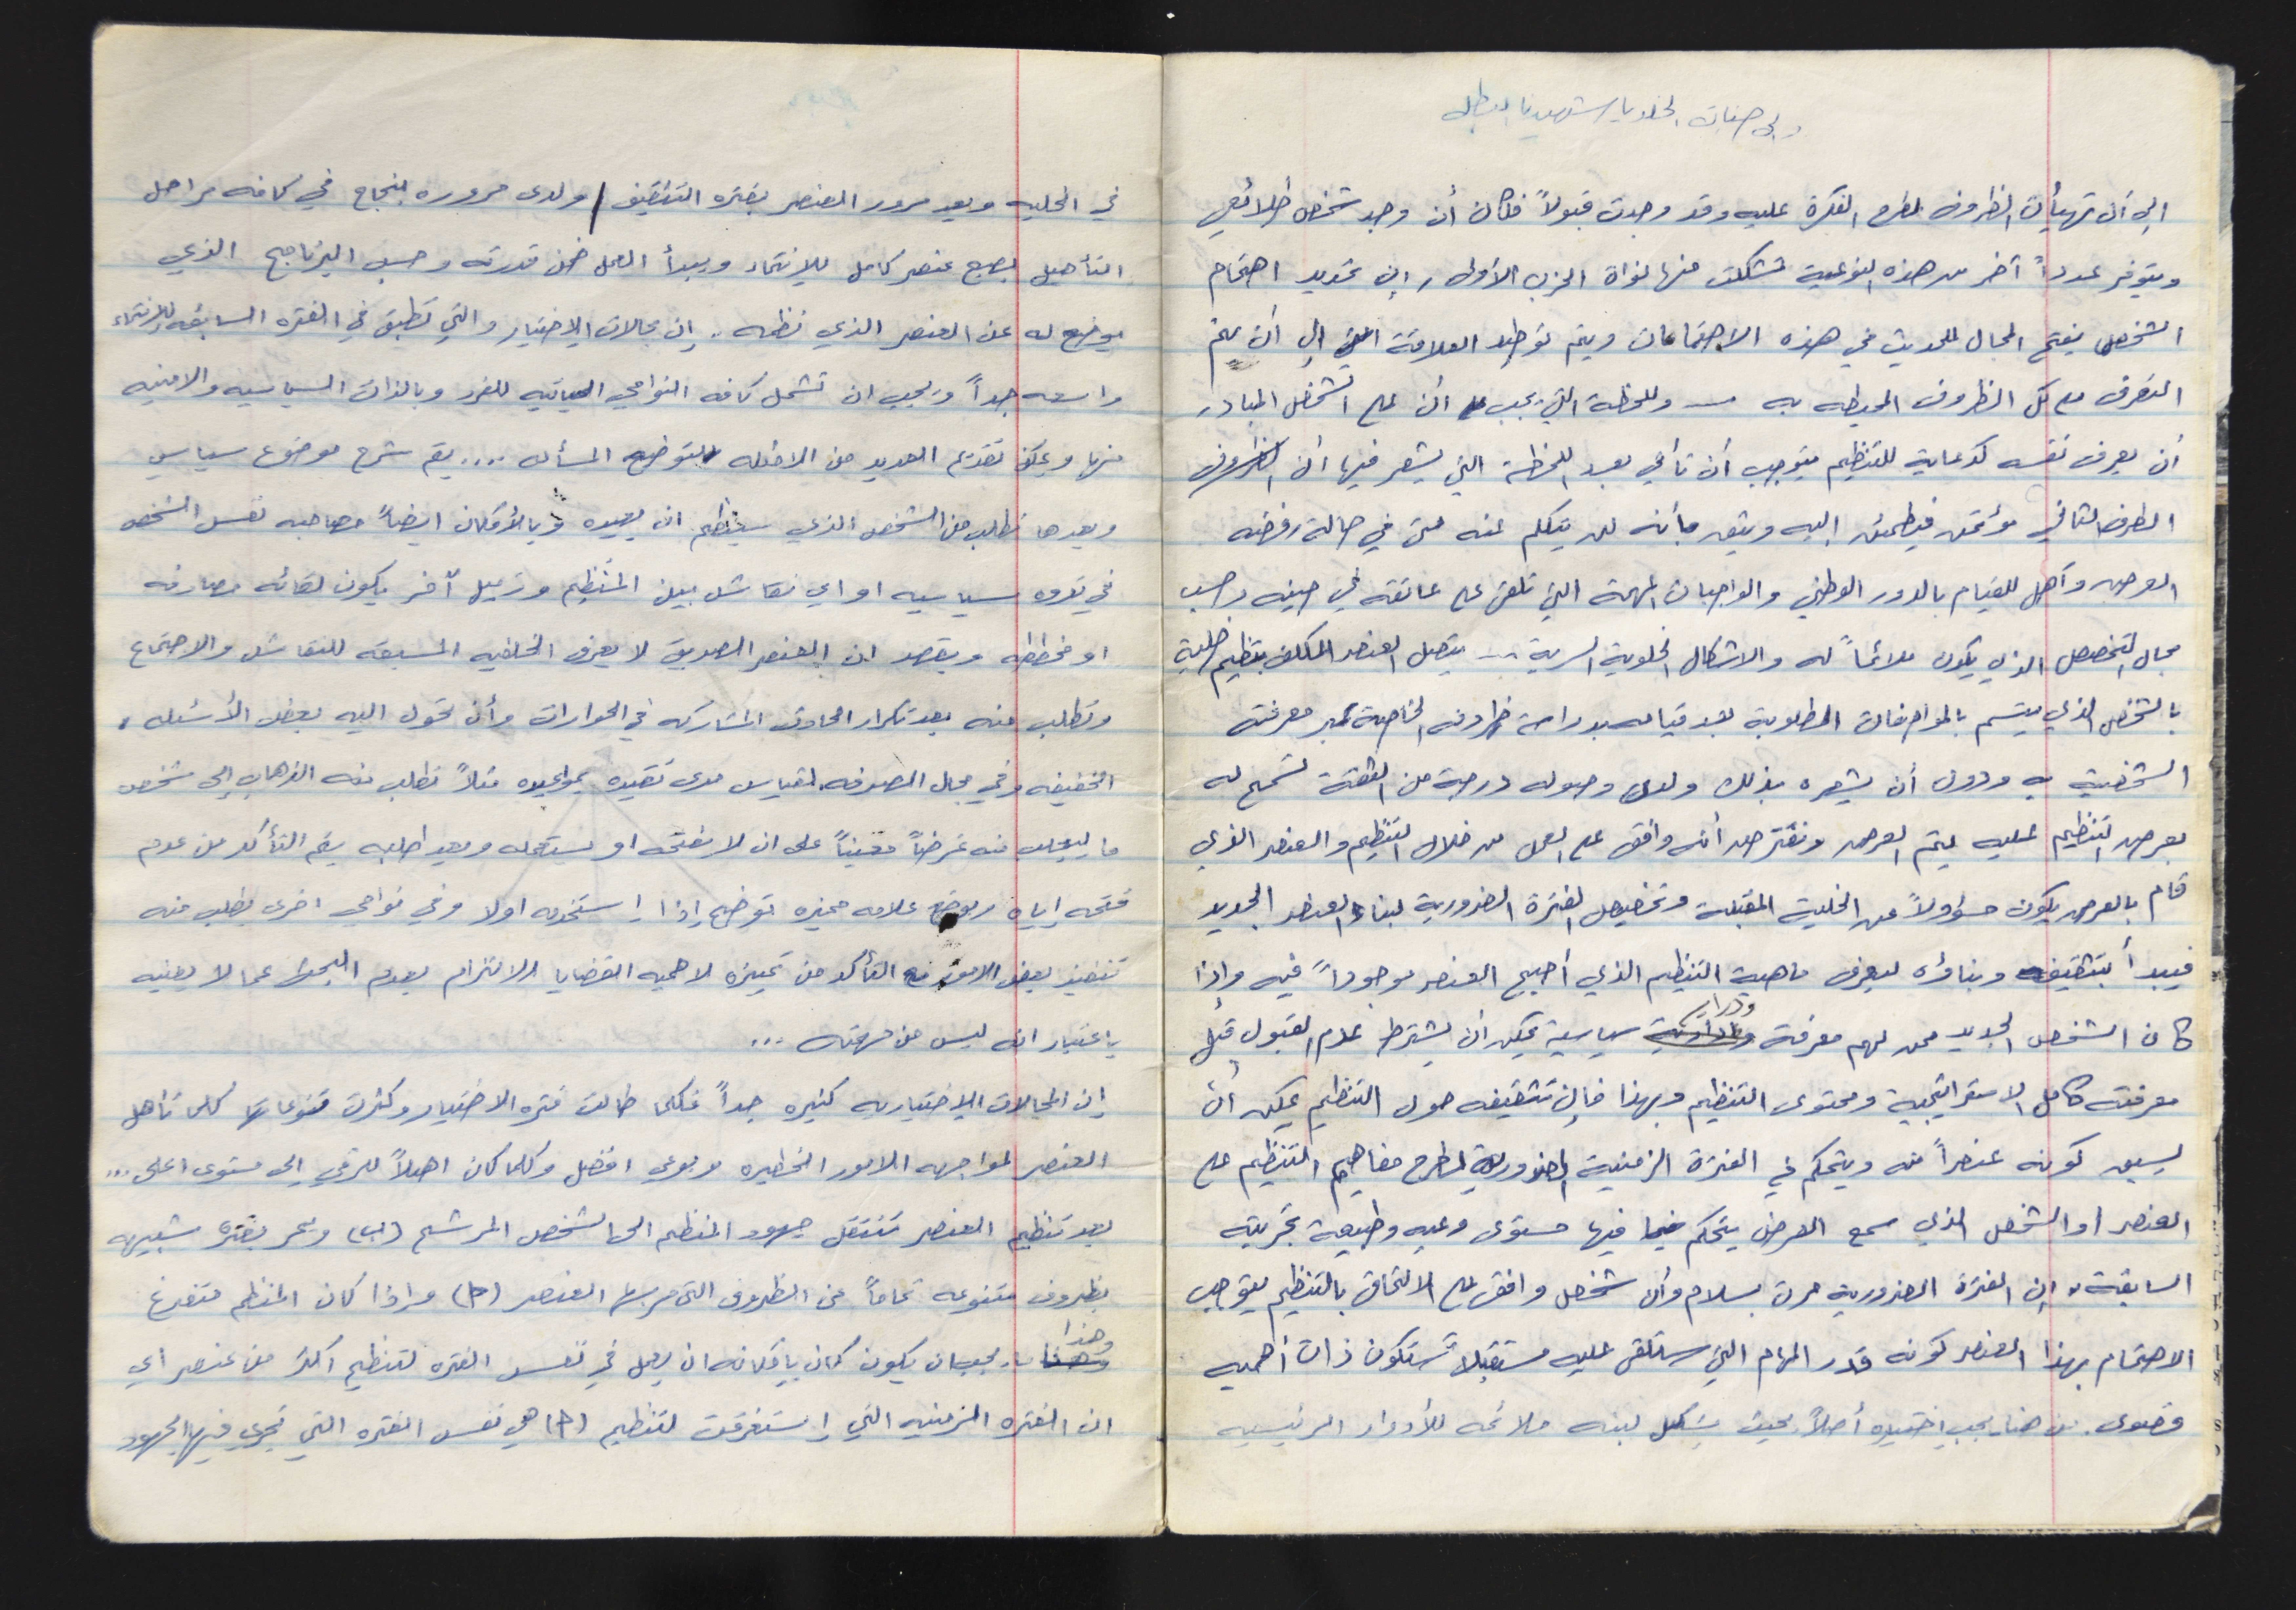 الى أن تهيأت الظروف لطرح الفكرة عليه وقد وجدت قبولاً فكان أن وجد شخص طلائعي
ويتوفر عدداً آخر من هذه النوعية تشكلت منها نواة الحزب الأولى، إن تحديد اهتمام
الشخص يفتح المجال للحديث في هذه الاهتمامات ويتم توطيد العلاقة الى أن يتم
التعرف مع كل الظروف المحيطه به — وللحظة التي يجب أن على الشخص المبادر
أن يعرف نفسه كدعاية للتنظيم يتوجب أن تأتي بعد اللحظة التي يشعر فيها أن الظروف
الطرف الثاني مؤتمن فيطمئن اليه ويثق بأنه لن يتكلم عنه حتى في حالة رفضه
العرض وأهل للقيام بالدور الوطني والواجبات المهمة التي تلقى على عاتقه في حينه وحسب
مجال التخصص الذي يكون ملائماً له والاشكال الخلوية السرية — يتصل العنصر المكلف بتنظيم خلية
بالشخص الذي يتسم بالمواصفات المطلوبة بعد قيامه بدراسة ظروفه الخاصة عبر معرفته
الشخصية به ودون أن يشعره بذلك ولدى وصوله درجة من الثقة تسمح له
بعرض التنظيم عليه يتم العرض ونفترض أنه وافق على العمل من خلال التنظيم والعنصر الذي
قام بالعرض يكون مسؤولاً عن الخلية المقبلة وتخصيص الفترة الضرورية لبناء العنصر الجديد
فيبدأ بتثقيفه وبناؤه ليعرف ماهية التنظيم الذي أصبح العنصر موجوداً فيه وإذا
كان الشخص الجديد ممن لهم معرفة ودراسة سياسية يمكن أن يشترط عدم القبول قبل
معرفته كامل الاستراتيجية ومحتوى التنظيم وبهذا فإن تثقيفه حول التنظيم يمكن أن
يسبق كونه عنصراً منه ويتحكم في الفترة الزمنية الضرورية لطرح مفاهيم التنظيم على
العنصر او الشخص الذي سمع العرض يتحكم فيها مستوى وعيه وطبيعة تجربته
السابقة، إن الفترة الضرورية مرت بسلام وأن شخص وافق على الالتحاق بالتنظيم يتوجب
الاهتمام بهذا العنصر كونه قدر المهام التي ستلقى عليه مستقبلاً ستكون ذات أهمية
قصوى. من هنا يجب اختياره أصلاً بحيث يشكل لبنه ملائمه للأدوار الرئيسيه
في الخليه وبعد مرور العنصر بفتره التثقيف / ولدى مروره بنجاح في كافه مراحل
التأهيل يصبح عنصر كامل للانتماء ويبدأ العمل ضمن قدرته وحسب البرنامج الذي
يوضع له عن العنصر الذي نظمه. إن مجالات الاختبار والتي تطبق في الفتره السابقه للانتماء
واسعه جداً ويجب ان تشمل كافه النواحي الحياتيه للفرد وبالذات السياسيه والامنيه
منها ويمكن تقديم العديد من الامثله لتوضيح المسأله .... يتم شرح موضوع سياسي
وبعدها نطلب من الشخص الذي سينظم ان يعيده وبالأمكان ايضاً مصاحبه نفس الشخص
في ندوه سياسيه او اي نقاش بين المنظم وزميل آخر يكون لقائه مصادفه
او مخططه ويقصد ان العنصر الصديق لا يعرف الخلفيه المسبقه للنقاش والاجتماع
ونطلب منه بعد تكرار الحادث المشاركه في الحوارات وأن تحول اليه بعض الأسئله،
الخفيفه وفي مجال الصدفه لقياس مدى تقيده بمواعيده مثلاً نطلب منه الذهاب إلى شخص
ما ليجلب منه غرضاً معيناً على ان لا يفتحه او يستعمله وبعد طلبه يتم التأكد من عدم
فتحه إياه بوضع علامه مميزه توضح إذا استخدمه اولا وفي نواحي اخرى يطلب منه
تنفيذ بعض الامور التأكد من تميزه لاهميه القضايا الالتزام بعدم البحث عما لا يعنيه
باعتبار انه ليس من مهمته ...
إن المجالات الاختياريه كثيره جداً فكلما طالت فتره الاختبار وكثرت تنوعاتها كلما تأهل
العنصر لمواجهه الامور الخطيره وبوعي افضل وكلما كان اهلاً للرقي الى مستوى اعلى ...
بعد تنظيم العنصر تنتقل جهود المنظم الى الشخص المرشح (ب) ويمر بفتره شبيهه
بظروف متنوعه تماماً عن الظروف التي مر بها العنصر (أ) وإذا كان المنظم متفرغ
وهذا يجب ان يكون كان بإمكانه ان يعمل في نفس الفتره لتنظيم اكثر من عنصر اي
ان الفتره الزمنيه التي إستغرقت لتنظيم (أ) هي نفس الفتره التي تجري فيها الجهود